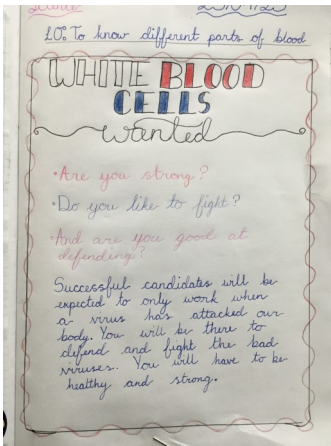 Science
LO: To know different parts of blood
WHITE BLOOD
CELLS
wanted
•Are you strong?
•Do you like to fight?
•And are you good at
defending?
Successful candidates will be
expected to only work when
a virus has attacked our
body. You will be there to
defend and fight the bad
viruses. You will have to be
healthy and strong.